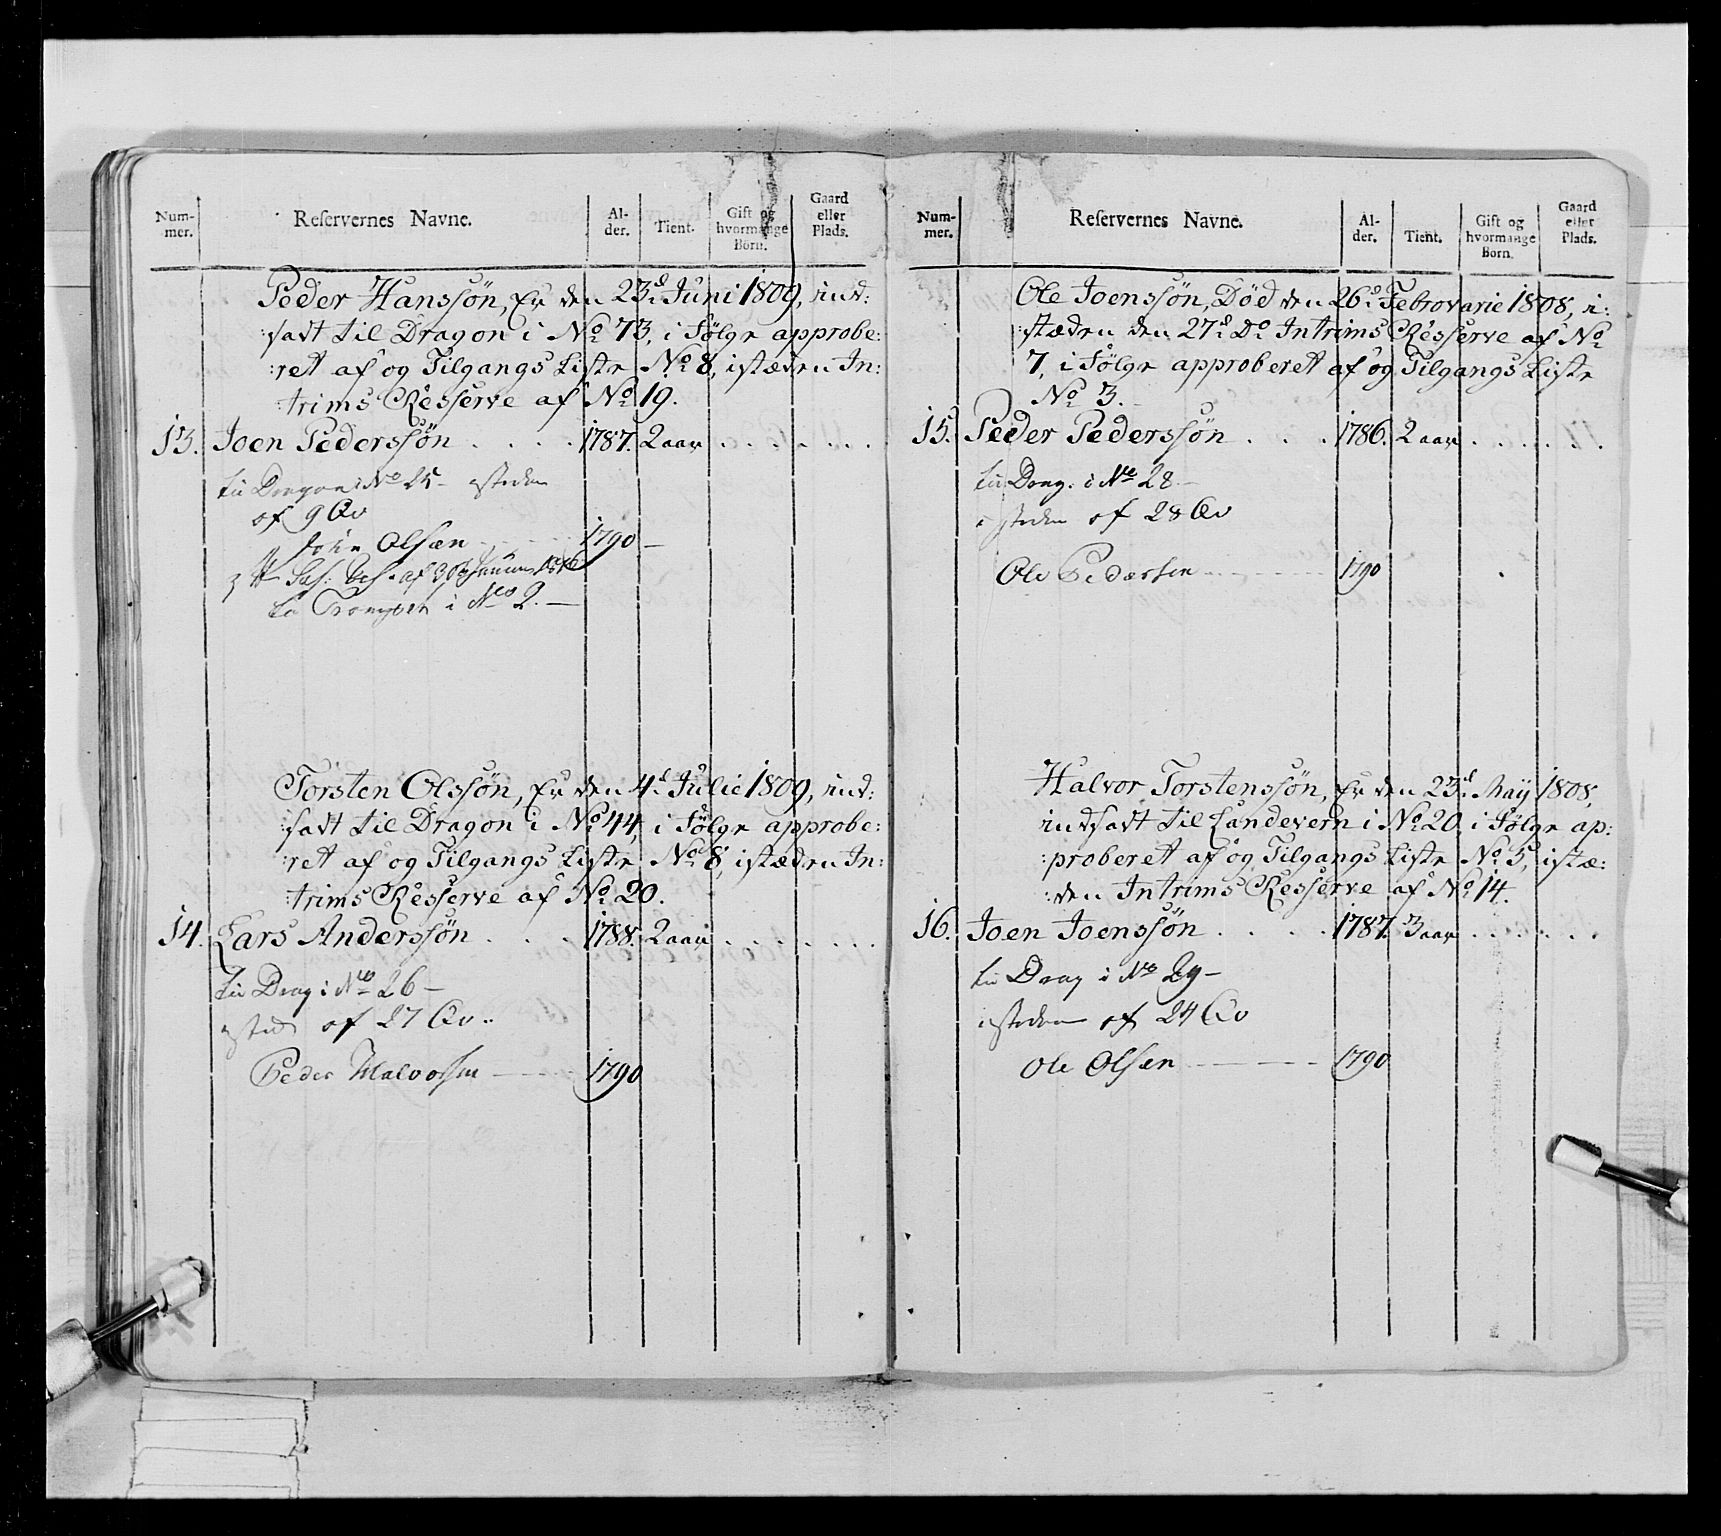 Num-
mer.
Reservernes Navne.
Al-
der.
Tient.
Gift og
hvormange
Börn.
Gaard
eller
Plads.
Peder Hanssön, Er den 23d Juni 1809, ind:
:sadt til Dragon i No 73, i Fölge approbe:
:ret af og Tilgangs Liste No 8, istæden In:
:trims Resserve af No 19.
13. Joen Pederssön . . . . 1787. 2 aar . . . . . .
til Dragon i No 25 - isteden
af 9 Qv
John Olsen - - - 1790 -
til Trompet i No 2. -
Torsten Olssön, Er den 4d Julie 1809, ind:
:sadt til Dragon i No 44, i Fölge approbe:
:ret af og Tilgangs Liste No 8, istæden In:
:trims Resserve af No 20.
14. Lars Anderssön . . . . 1788. 2 aar . . . . . .
til Drag i No 26 -
isted af 27 Qv.
Peder Halvorsen - - - 1790
Num-
mer.
Reservernes Navne.
Al-
der.
Tient.
Gift og
hvormange
Börn.
Gaard
eller
Plads.
Ole Joenssön, Död den 26d Februarie 1808, i:
:stæden den 27d Do Intrims Resserve af No
7, i Fölge approberet af og Tilgangs Liste
No 3.
15. Peder Pederssön . . . 1786. 2 aar . . . . . .
til Drag. i No 28 -
isteden af 28 Qv
Ole Pedersen - - - 1790
Halvor Torstenssön, Er den 23d Maij 1808,
indsadt til Landevern i No 20, i Fölge ap:
:proberet af og Tilgangs Liste No 5, istæ:
:den Intrims Resserve af No 14.
16. Joen Joenssön . . . . 1787. 3 aar . . . . . .
til Drag i No 29 -
isteden af 24 Qv
Ole Olsen - - - 1790